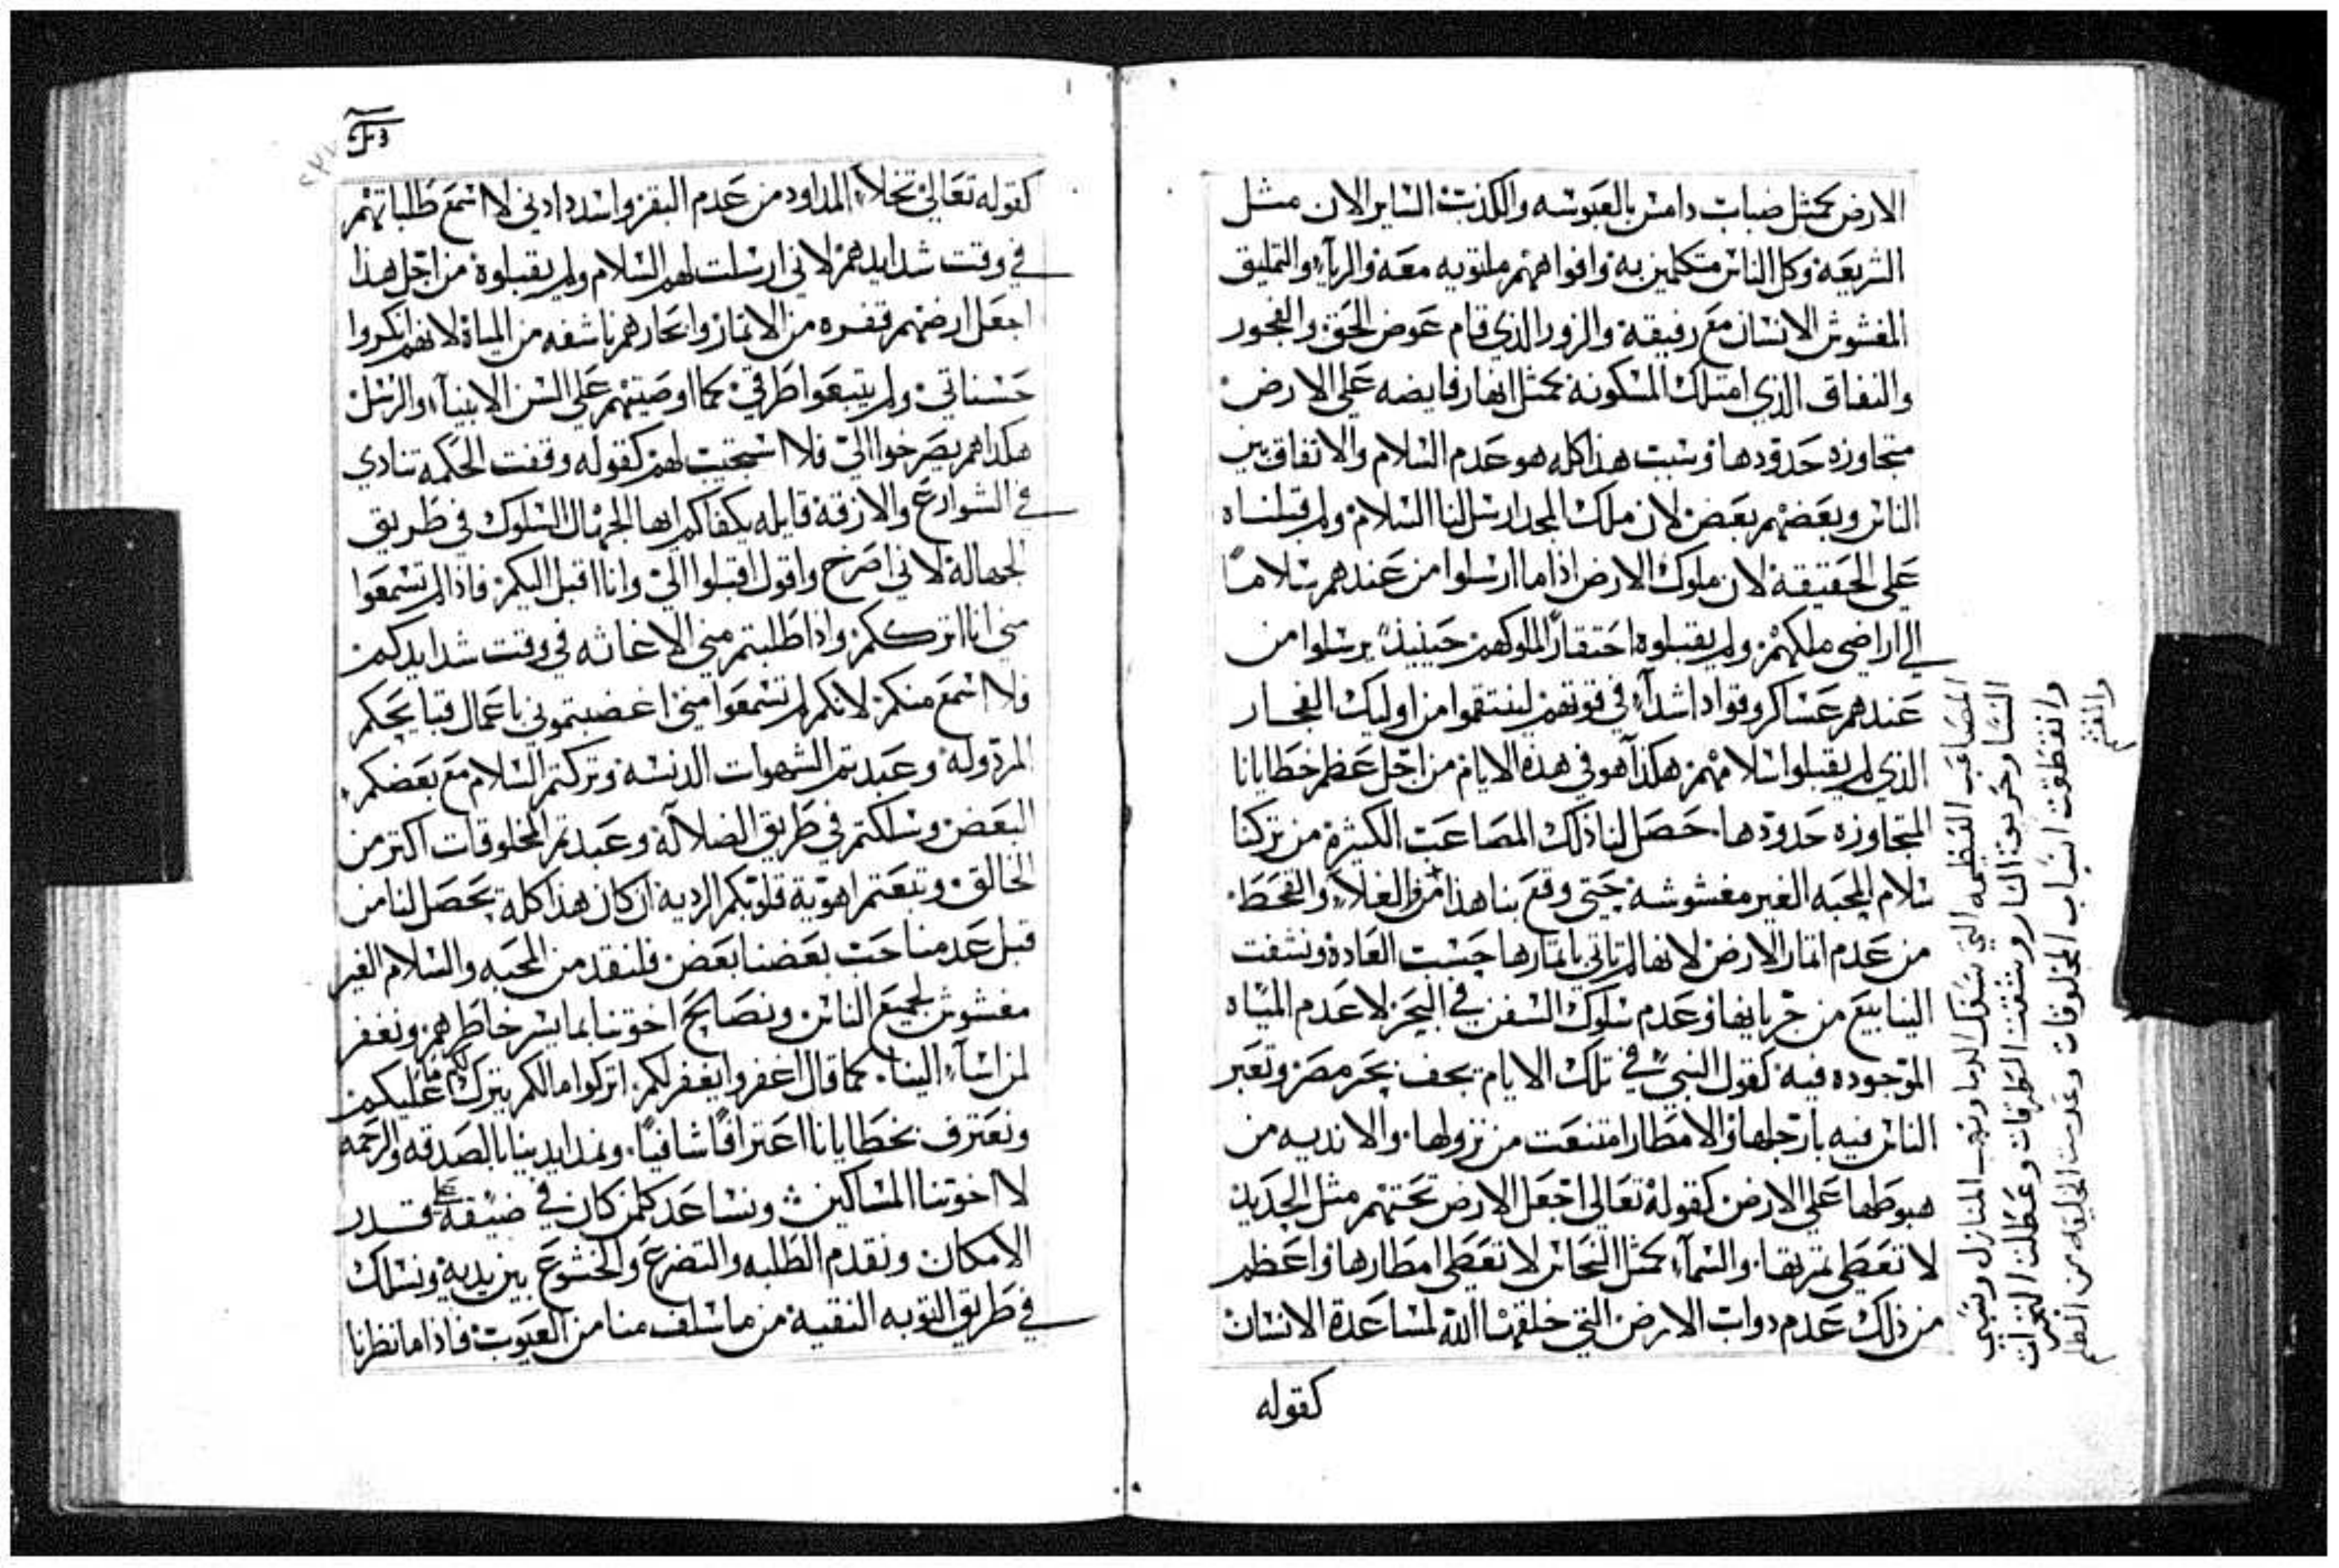 الارض كمثل ضباب دامس بالعبوسه والكذب الساير الان مثل
الشريعة وكل الناس متكلمين به وافواههم ملتويه معه والرياء والتمليق
المغشوش الانسان مع رفيقه والزور الذي قام عوض الحق والفجور
والنفاق الذي امتلك المسكونه كمثل انهار فايضه على الارض
متجاوزه حدودها وسبب هذا كله هو عدم السلام والاتفاق بين
الناس وبعضهم بعض لان ملك المجد ارسل لنا السلام ولم قبلناه
على الحقيقة لان ملوك الارض اذا ما ارسلوا من عندهم سلاماً
الي اراضي ملكهم ولم يقبلوه احتقاراً لملوكهم حينيذ يرسلوا من
عندهم عساكر وقواد اشدآء في قوتهم لينتقموا من اوليك الفجار
الذي لم يقبلوا سلامهم هكذا هو في هذه الايام من اجل عظم خطايانا
المتجاوزه حدودها حصل لنا ذلك المصاعب الكثيرة من تركنا
سلام المحبه الغير مغشوشه حتي وقع بنا هذا من الغلاء والقحط
من عدم اثمار الارض لانها لم تاتي باثمارها حسب العادة ونشفت
الينابيع من جريانها وعدم سلوك السفن في البحر لاعدم المياه
الموجوده فيه كقول النبي في تلك الايام يجف بحر مصر وتعبر
الناس فيه بارجلها والامطار امتنعت من نزولها والانديه من
هبوطها على الارض كقوله تعالى اجعل الارض تحتهم مثل الحديد
لا تعطي ثمرتها والسمآء كمثل النحاس لا تعطي امطارها واعظم
من ذلك عدم دواب الارض التي خلقها الله لمساعدة الانسان
كقوله
المصاعب العظيمه التي سفك الدما ونهب المنازل وسبي
النسا وحريق النار وشقت الطرقات وعطلت الثمرات
وانقطعت اسباب المخلوقات وعدمت الخليقه من الظلم
والغش
كقوله تعالى تخلا المداود من عدم البقر واسدد ادني لا اسمع طلباتهم
في وقت شدايدهم لاني ارسلت لهم السلام ولم يقبلوه من اجل هذا
اجعل ارضهم قفره من الاثمار وابحارهم ناشفه من المياة لانهم انكروا
حسناتي ولم يتبعوا طرقي كما اوصيتهم على السن الانبيآء والرسل
هكذا هم يصرخوا الي فلا استجيب لهم كقوله وقفت الحكمه تنادي
في الشوارع والازقة قايله يكفاكم ايها الجهال السلوك في طريق
الجهالة لاني اصرخ واقول اقبلوا الي وانا اقبل اليكم فاذا لم تسمعوا
مني انا اترككم واذا طلبتم مني الاغاثه في وقت شدايدكم
فلا اسمع منكم لانكم لم تسمعوا مني اغضبتموني باعمال قبايحكم
المردوله وعبدتم الشهوات الدنسه وتركتم السلام مع بعضكم
البعض وسلكتم في طريق الضلالة وعبدتم المخلوقات اكتر من
الخالق وتبعتم اهوية قلوبكم الرديه ان كان هذا كله يحصل لنا من
قبل عدمنا حب بعضنا بعض فلنقدم المحبه والسلام الغير
مغشوش لجميع الناس ونصالح اخوتنا بما يسر خاطرهم ونغفر
لمن اسآء الينا كما قال اغفروا يغفر لكم اتركوا ما لكم يترك لكم ما عليكم
ونعترف بخطايانا اعترافاً شافياً ونمد ايدينا بالصدقه والرحمه
لاخوتنا المساكين ونساعد كلمن كان في ضيقة علي قدر
الامكان ونقدم الطلبه والتضرع والخشوع بين يديه ونسلك
في طريق التوبه النقيه من ما سلف منا من العيوب فاذا ما نظرنا